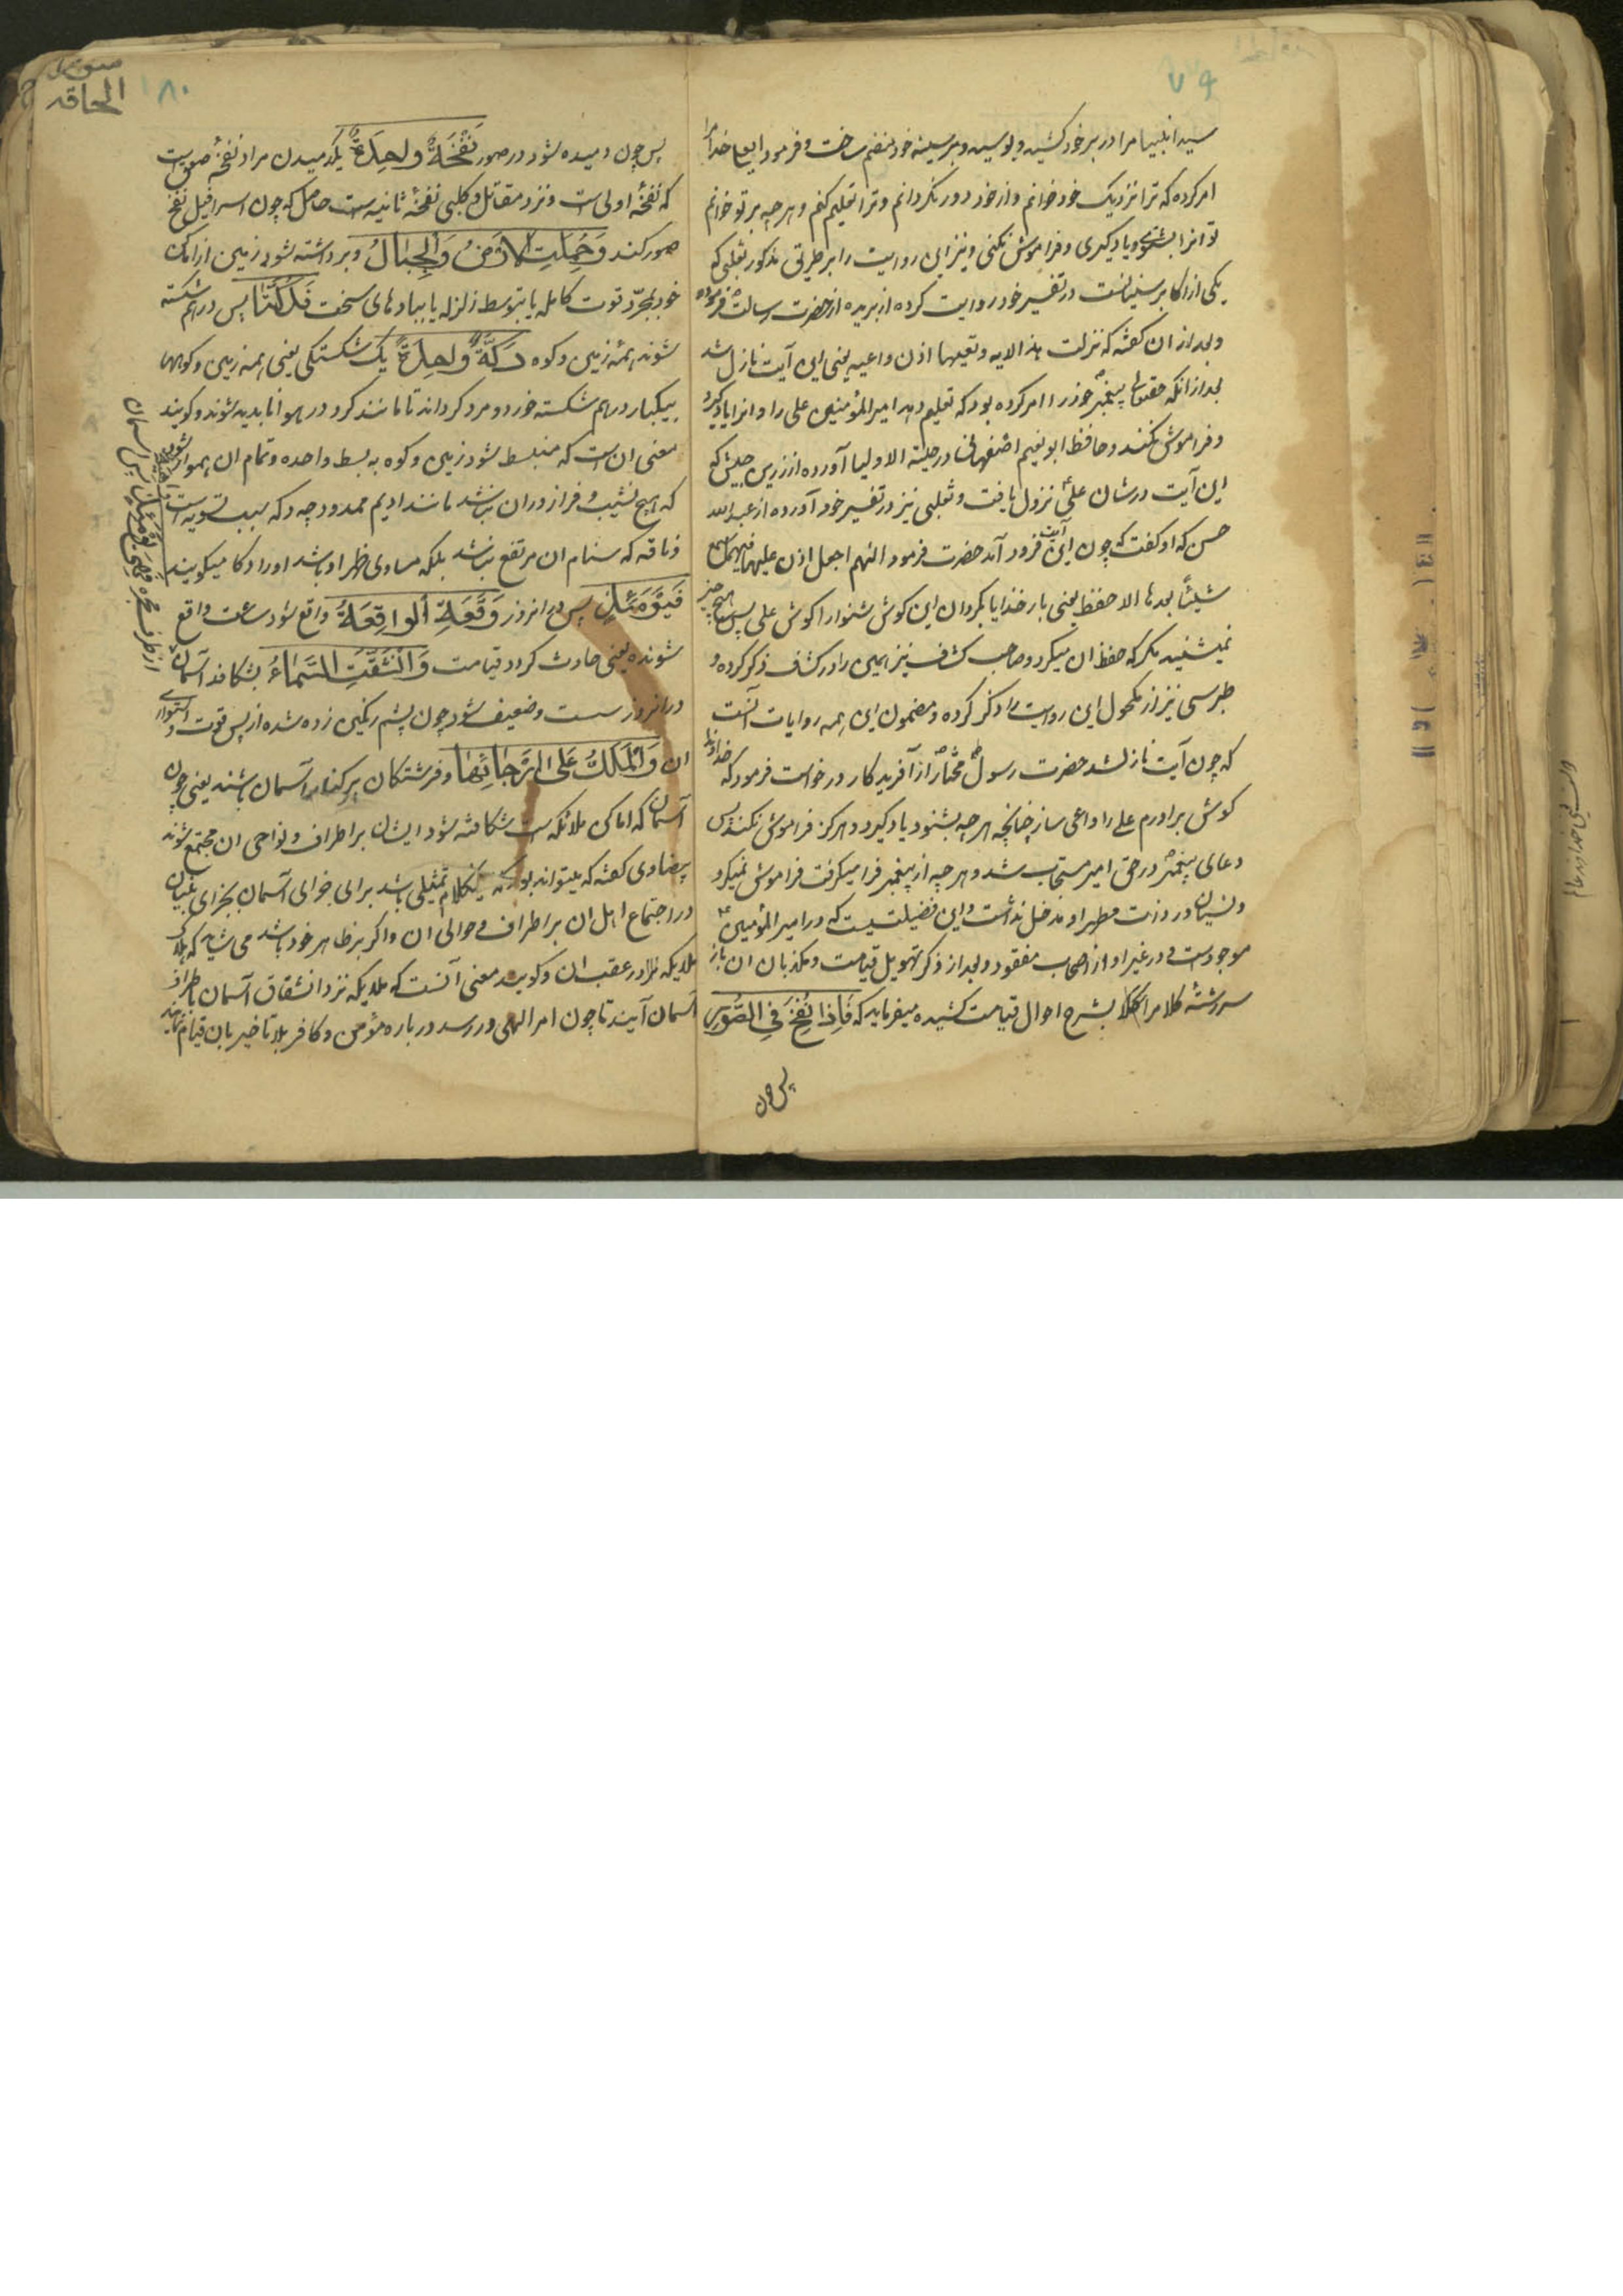 ۷۹
سید انبیا مرا در بر خود کشید و بوسید و بر سینه خود منضم ساخت و فرمود ای علی خدا مرا
امر کرده که ترا نزدیک خود خوانم و از خود دور نگردانم و ترا تعلیم کنم و هر چه بر تو خوانم
تو انرا بشنوی و یاد گیری و فراموش نکنی و نیز این روایت را بر طریق مذکور ثعلبی که
یکی از اکابر سنیانست در تفسیر خود روایت کرده از بریده از حضرت رسالت فرموده
و بعد از ان گفته که نزلت هذه الایه و تعیها اذن واعیه یعنی این آیت نازل شد
بعد از انکه حقتعالی پیغمبر خود را امر کرده بود که تعلیم دهد امیر المؤمنین علی را و انرا یاد گیرد
و فراموش نکند و حافظ ابو نعیم اصفهانی در حلیته الاولیا آورده از زر بن حبیش که
این آیت در شان علی نزول یافت و ثعلبی نیز در تفسیر خود آورده از عبد الله
حسن که او گفت که چون این آیت فرود آمد حضرت فرمود اللهم اجعل اذن علی
شیئا بعدها الا حفظ یعنی بار خدایا بگردان این گوش شنوا را گوش علی پس هیچ چیز
نمیشنید مگر که حفظ ان میکرد و صاحب کشاف نیز همین را در کشاف ذکر کرده و
طبرسی نیز از مکحول این روایت را ذکر کرده و مضمون این همه روایات آنست
که چون آیت نازل شد حضرت رسول مختار از آفریدگار درخواست فرمود که خداوندا
گوش برادرم علی را واعی ساز چنانچه هر چه بشنود یاد گیرد و هرگز فراموش نکند پس
دعای پیغمبر در حق امیر مستجاب شد و هر چه از پیغمبر فرا میگرفت فراموش نمیکرد
و نسیان در ذات مطهر او مدخل نداشت و این فضیلتیست که در امیر المؤمنین
موجود است و در غیر او از اصحاب مفقود و بعد از ذکر تهویل قیامت و مکذبان ان باز
سررشتهٔ کلام را بشرح احوال قیامت کشیده میفرماید که فَاِذَا نُفِخَ فِی الصُّوْرِ
پس چون
سورة
الحاقه
۱۸۰
پس چون دمیده شود در صور نَفْخَةٌ وَاحِدَةٌ یکدمیدن مراد نفخهٔ صور است
که نفخهٔ اولی است و نزد مقاتل و کلبی نفخهٔ ثانیه است حاصل که چون اسرافیل نفخ
صور کند وَحُمِلَتِ الْاَرْضُ وَالْجِبَالُ و برداشته شود زمین از اماکن
خود بمجرد قوت کامله یا بتوسط زلزله یا ببادهای سخت فَدُکَّتَا پس در هم شکسته
شوند همه زمین و کوه دَکَّةً وَاحِدَةً یک شکستگی یعنی همه زمین و کوهها
بیکبار در هم شکسته خورد و مرد گرداند تا مانند گرد در هوا نابدید شوند و گویند
معنی ان است که منبسط شود زمین و کوه به بسط واحده و تمام ان هموار شود
که هیچ نشیب و فراز در ان نباشد مانند ادیم ممدود چه دکه سبب تسویه است
و ناقه که سنام ان مرتفع نباشد بلکه مساوی ظهر او باشد او را دکا میگویند
فَیَوْمَئِذٍ پس در انروز وَقَعَتِ الْوَاقِعَةُ واقع شود ساعت واقع
شونده یعنی حادث گردد قیامت وَانْشَقَّتِ السَّمَاءُ بشکافد آسمان
در انروز سست و ضعیف شود چون پشم رنگین زده شده از پس قوت و استواری
ان وَالْمَلَكُ عَلَی اَرْجَائِهَا و فرشتکان بر کنارها آسمان باشند یعنی چون
آسمان که اماکن ملائکه است شکافته شود ایشان بر اطراف و نواحی ان مجتمع شوند
بیضاوی گفته که میتواند بود که اینکلام تمثیلی باشد برای خرابی آسمان بخرابی بنیان
و در اجتماع اهل ان بر اطراف و حوالی ان و اگر بر ظاهر خود باشد می شاید که هلاک
ملایکه در عقب ان و گویند معنی آنست که ملایکه نزد انشقاق آسمان باطراف
آسمان آیند تا چون امر الهی در رسد در باره مؤمن و کافر بلا تاخیر بان قیام نمایند
فَهِیَ یَوْمَئِذٍ پس آسمان
از طرف مجره